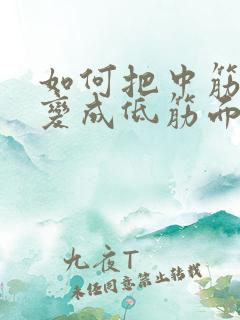 如何把中筋
變成低筋而
九夜T
未经同意禁止转载